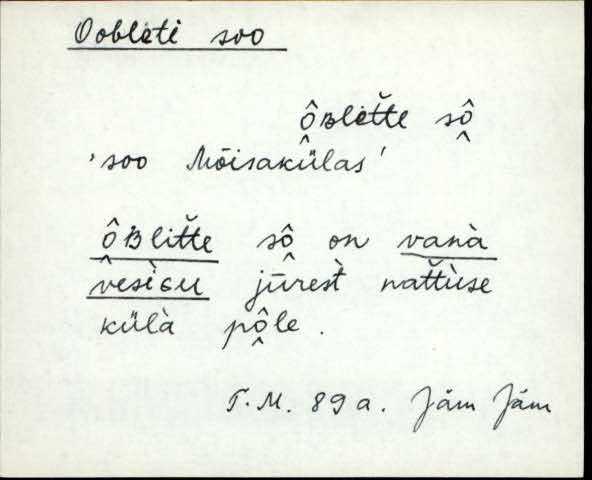 Oobleti soo
ô̭ʙletˇte sô̭
'soo Mõisakülas'
ô̭ʙlitˇte sô̭ on vanà
vesìɢu jūrest̀ natˇtùse
külà pô̭le.
T.M. 89 a. Jäm Jäm